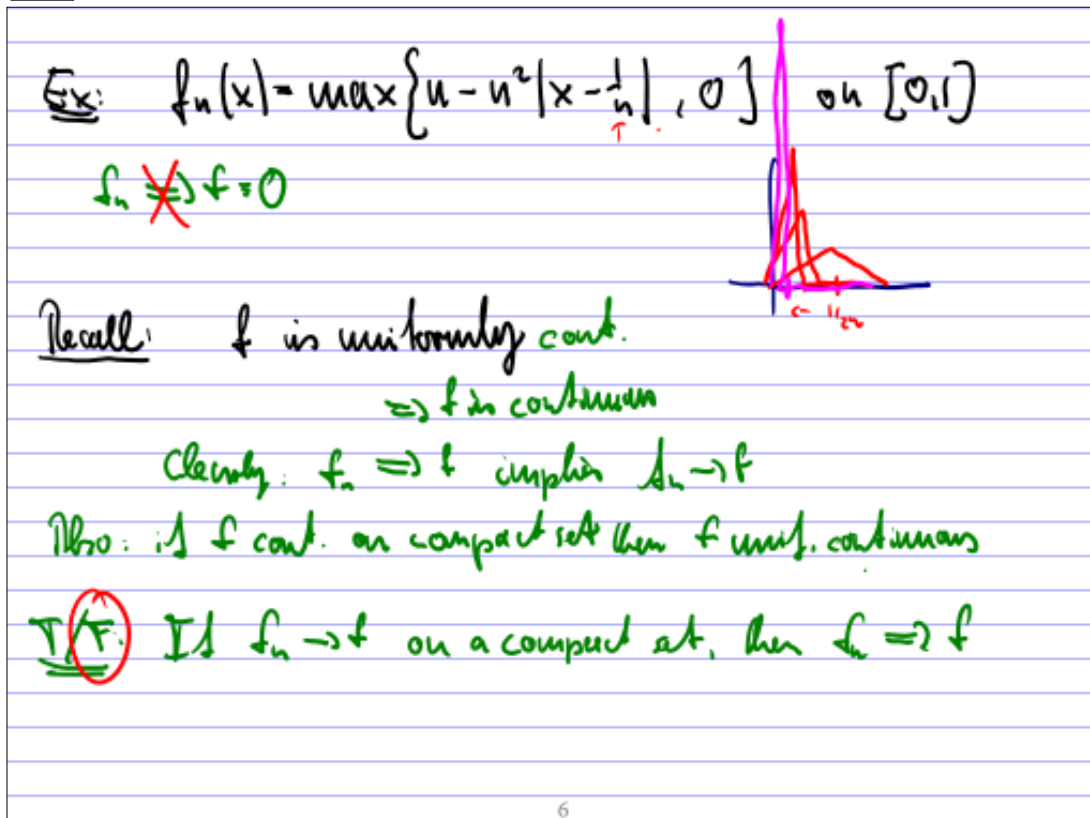 Ex: fn(x) = max{n - n²|x - 1/n|, 0} on [0,1]
fn ⇒ f = 0
Recall: f is uniformly cont.
⇒ f is continuous
Clearly: fn ⇒ f implies fn → f
Also: if f cont. on compact set then f unif. continuous
T/F: If fn → f on a compact set, then fn ⇒ f
6